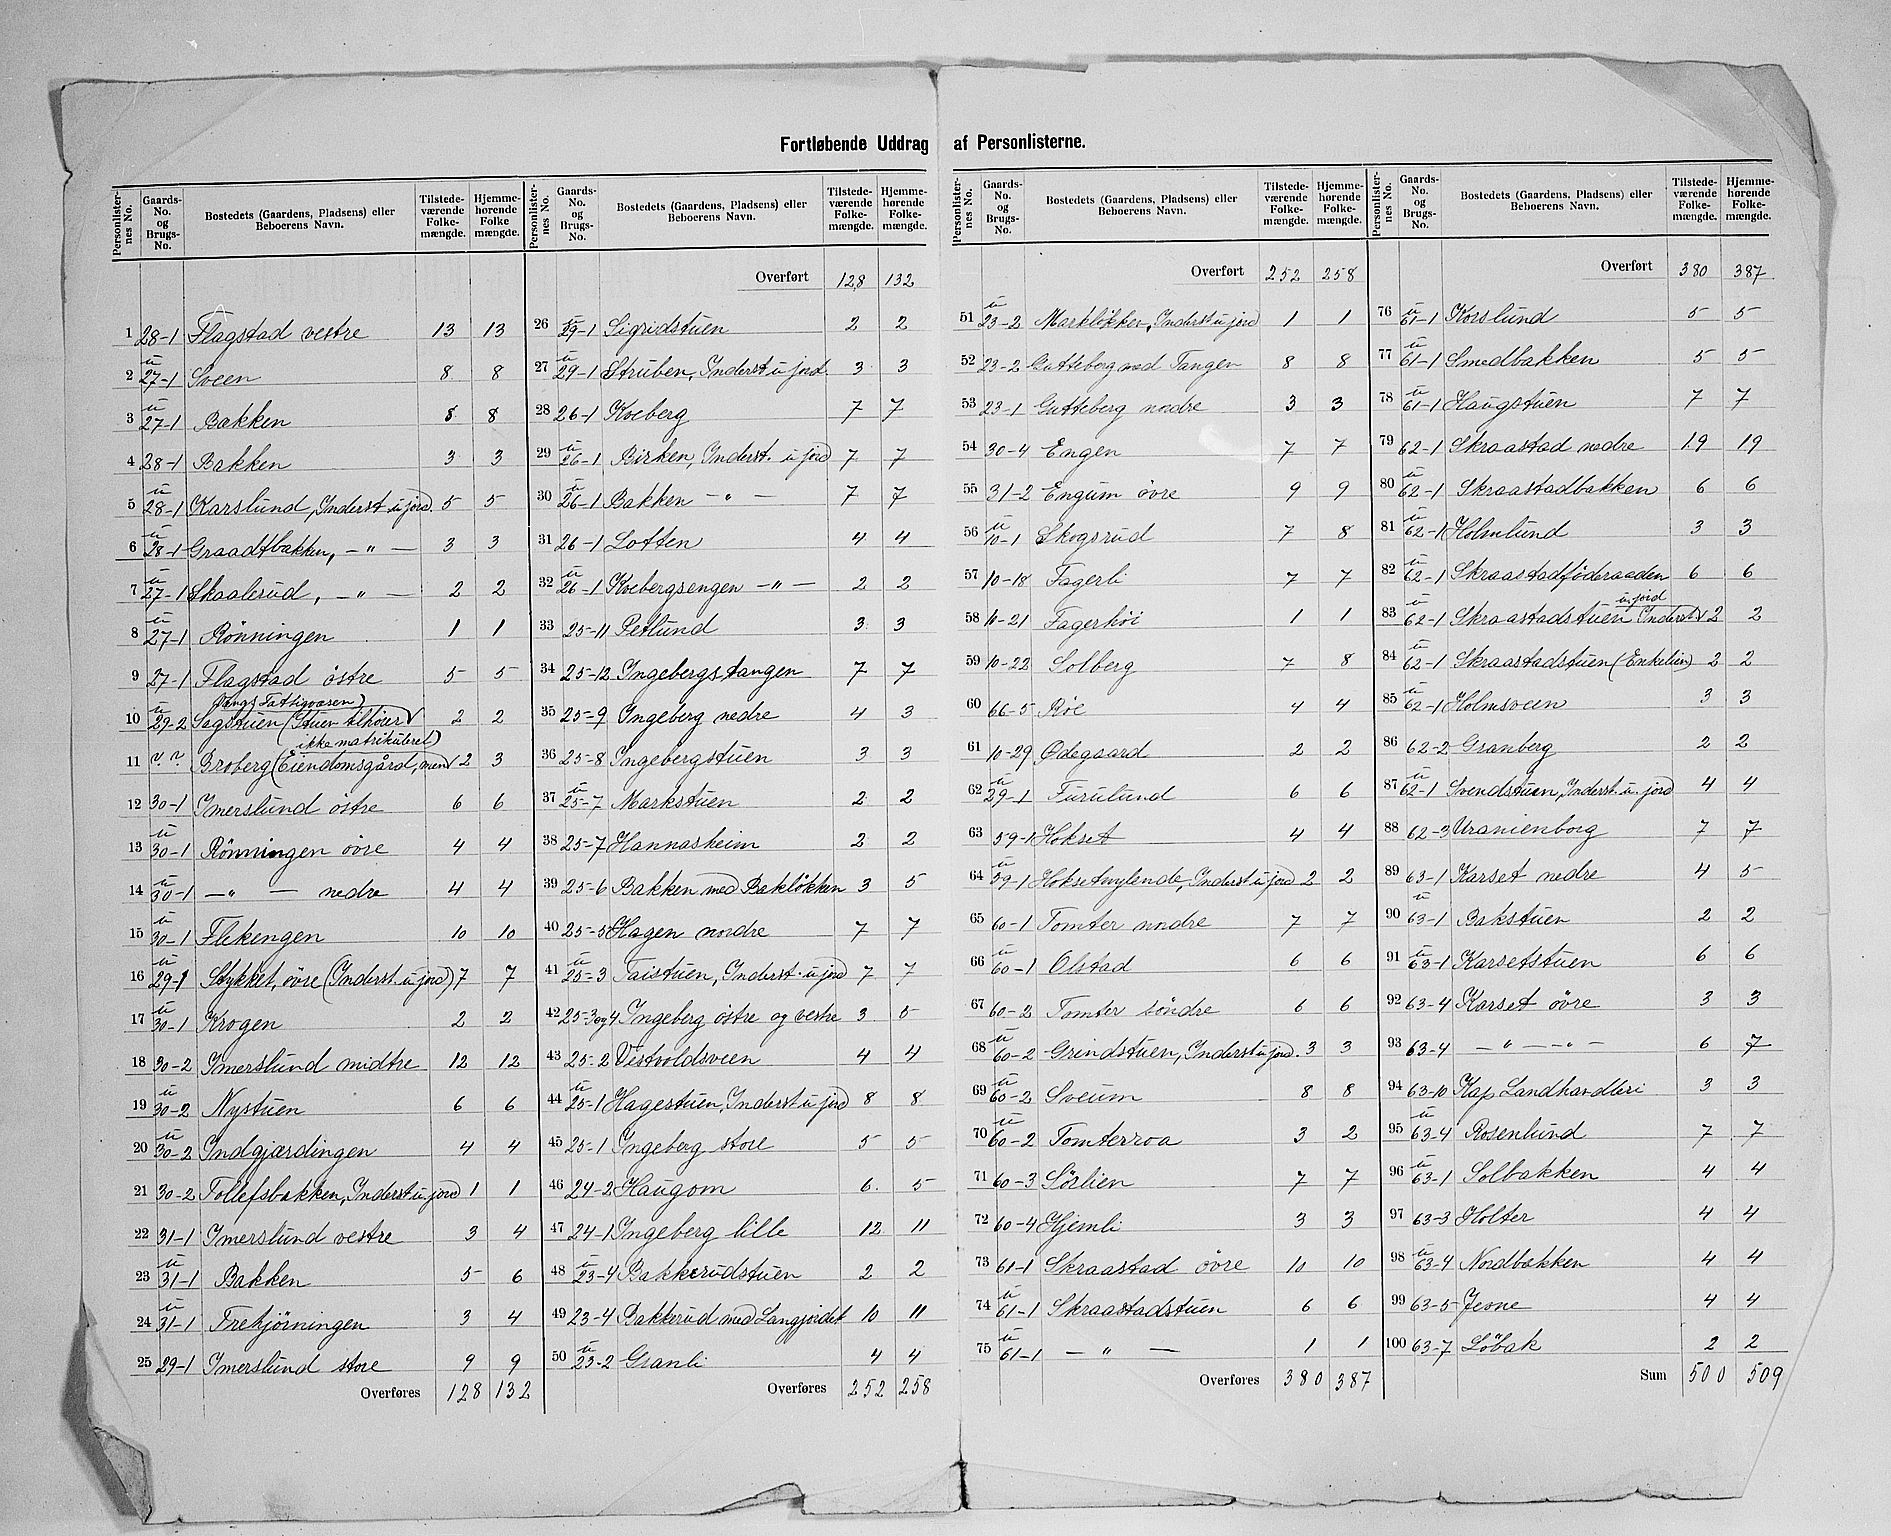 Fortløbende Uddrag af Personlisterne.
Personlisternes No. Gaards-No. og Brugs-No. Bostedets (Gaardens, Pladsens) eller Beboerens Navn. Tilstedeværende Folkemængde. Hjemmehørende Folkemængde.
1 28-1 Flagstad vestre 13 13
2 u 27-1 Sveen 8 8
3 u 27-1 Bakken 8 8
4 28-1 Bakken 3 3
5 u 28-1 Karslund, Inderst u jord 5 5
6 u 28-1 Graadtbakken, —"— 3 3
7 u 27-1 Skaalerud, —"— 2 2
8 u 27-1 Rönningen 1 1
9 27-1 Flagstad östre 5 5
10 u 29-2 Sagstuen (Stuen tilhører Vangs Fattigvæsen) 2 2
11 ? ? Broberg (Eiendomsgård, men ikke matrikuleret) 2 3
12 30-1 Imerslund östre 6 6
13 u 30-1 Rönningen övre 4 4
14 u 30-1 —"— nedre 4 4
15 u 30-1 Flekengen 10 10
16 u 29-1 Stykket, övre (Inderst. u jord) 7 7
17 u 30-1 Krogen 2 2
18 30-2 Imerslund midtre 12 12
19 u 30-2 Nystuen 6 6
20 u 30-2 Indgjærdingen 4 4
21 30-2 Tollefsbakken, Inderst u. jord 1 1
22 31-1 Imerslund vestre 3 4
23 u 31-1 Bakken 5 6
24 u 31-1 Frehjörningen 3 4
25 29-1 Imerslund store 9 9
Overføres 128 132
Personlisternes No. Gaards-No. og Brugs-No. Bostedets (Gaardens, Pladsens) eller Beboerens Navn. Tilstedeværende Folkemængde. Hjemmehørende Folkemængde.
Overført 128 132
26 u 29-1 Sigridstuen 2 2
27 u 29-1 Struben, Inderst u jord 3 3
28 26-1 Kveberg 7 7
29 u 26-1 Birken, Inderst. u jord 7 7
30 u 26-1 Bakken —"— 7 7
31 26-1 Lotten 4 4
32 u 26-1 Kvebergsengen —"— 2 2
33 25-11 Petlund 3 3
34 25-12 Ingebergstangen 7 7
35 25-9 Ingeberg nedre 4 3
36 25-8 Ingebergstuen 3 3
37 u 25-7 Markstuen 2 2
38 25-7 Hannasheim 2 2
39 25-6 Bakken med Baklökken 3 5
40 25-5 Hagen nordre 7 7
41 u 25-3 Taistuen, Inderst. u jord 7 7
42 25-3og4 Ingeberg östre og vestre 3 5
43 25-2 Vestvoldsveen 4 4
44 u 25-1 Hagestuen, Inderst u jord 8 8
45 25-1 Ingeberg store 5 5
46 24-2 Haugom 6 5
47 24-1 Ingeberg lille 12 11
48 u 23-4 Bakkerudstuen 2 2
49 23-4 Bakkerud med Langjordet 10 11
50 u 23-2 Granli 4 4
Overføres 252 258
Personlisternes No. Gaards-No. og Brugs-No. Bostedets (Gaardens, Pladsens) eller Beboerens Navn. Tilstedeværende Folkemængde. Hjemmehørende Folkemængde.
Overført 252 258
51 u 23-2 Marklökken, Inderst u jord 1 1
52 23-2 Gutteberg med Tangen 8 8
53 23-1 Gutteberg nordre 3 3
54 30-4 Engen 7 7
55 31-2 Engum övre 9 9
56 u 10-1 Skogsrud 7 8
57 10-18 Fagerli 7 7
58 10-21 Fagerhöi 1 1
59 10-22 Solberg 7 8
60 66-5 Röe 4 4
61 10-29 Ødegaard 2 2
62 u 29-1 Furulund 6 6
63 59-1 Hokset 4 4
64 u 59-1 Hoksetnylende, Inderst u jord 2 2
65 60-1 Tomter nordre 7 7
66 u 60-1 Olstad 6 6
67 60-2 Tomter söndre 6 6
68 u 60-2 Grindstuen, Inderst u jord. 3 3
69 u 60-2 Sveum 8 8
70 u 60-2 Tomterroa 3 2
71 60-3 Sörlien 7 7
72 60-4 Hjemli 3 3
73 61-1 Skraastad övre 10 10
74 u 61-1 Skraastadstuen 6 6
75 u 61-1 —"— 1 1
Overføres 380 387
Personlisternes No. Gaards-No. og Brugs-No. Bostedets (Gaardens, Pladsens) eller Beboerens Navn. Tilstedeværende Folkemængde. Hjemmehørende Folkemængde.
Overført 380 387
76 u 61-1 Korslund 5 5
77 u 61-1 Smedbakken 5 5
78 u 61-1 Haugstuen 7 7
79 62-1 Skraastad nedre 19 19
80 u 62-1 Skraastadbakken 6 6
81 u 62-1 Holmlund 3 3
82 u 62-1 Skraastadföderaaden 6 6
83 u 62-1 Skraastadstuen Inderst u. jord 2 2
84 u 62-1 Skraastadstuen (Enkelien) 2 2
85 u 62-1 Holmsveen 3 3
86 62-2 Granberg 2 2
87 u 62-1 Svendstuen, Inderst. u. jord 4 4
88 62-3 Uranienborg 7 7
89 63-1 Karset nedre 4 5
90 u 63-1 Bakstuen 2 2
91 u 63-1 Karsetstuen 6 6
92 63-4 Karset övre 3 3
93 63-4 —"— —"— 6 7
94 63-10 Kap Landhandleri 3 3
95 u 63-4 Rosenlund 7 7
96 u 63-1 Solbakken 4 4
97 63-3 Holter 4 4
98 u 63-4 Nordbakken 4 4
99 63-5 Jesne 4 4
100 63-7 Löbak 2 2
Sum 500 509